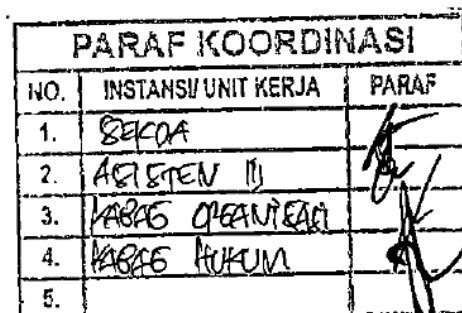 PARAF KOORDINASI
NO. INSTANSI/UNIT KERJA PARAF
1. SEKDA
2. ASISTEN III
3. KABAG ORGANISASI
4. KABAG HUKUM
5.